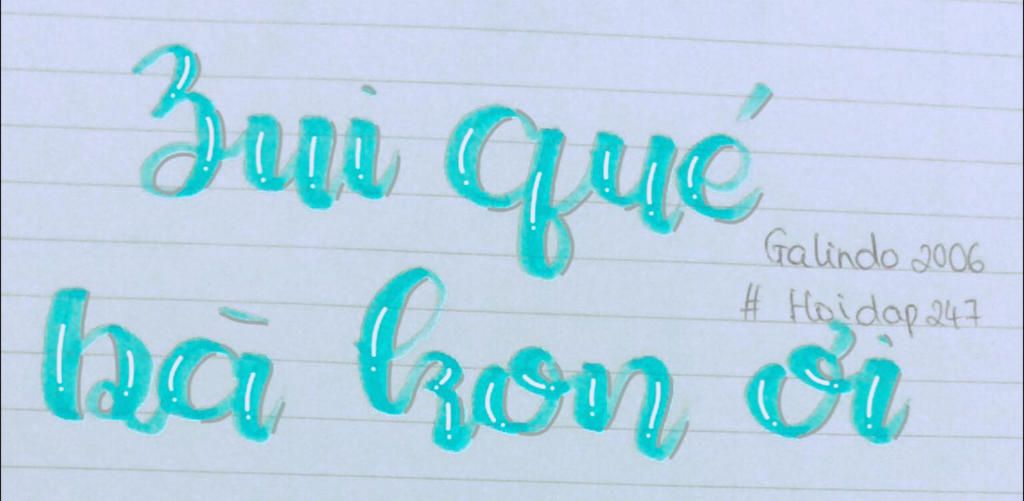 Zui qué
Galindo 2006
# Hoidap247
bà kon ơi